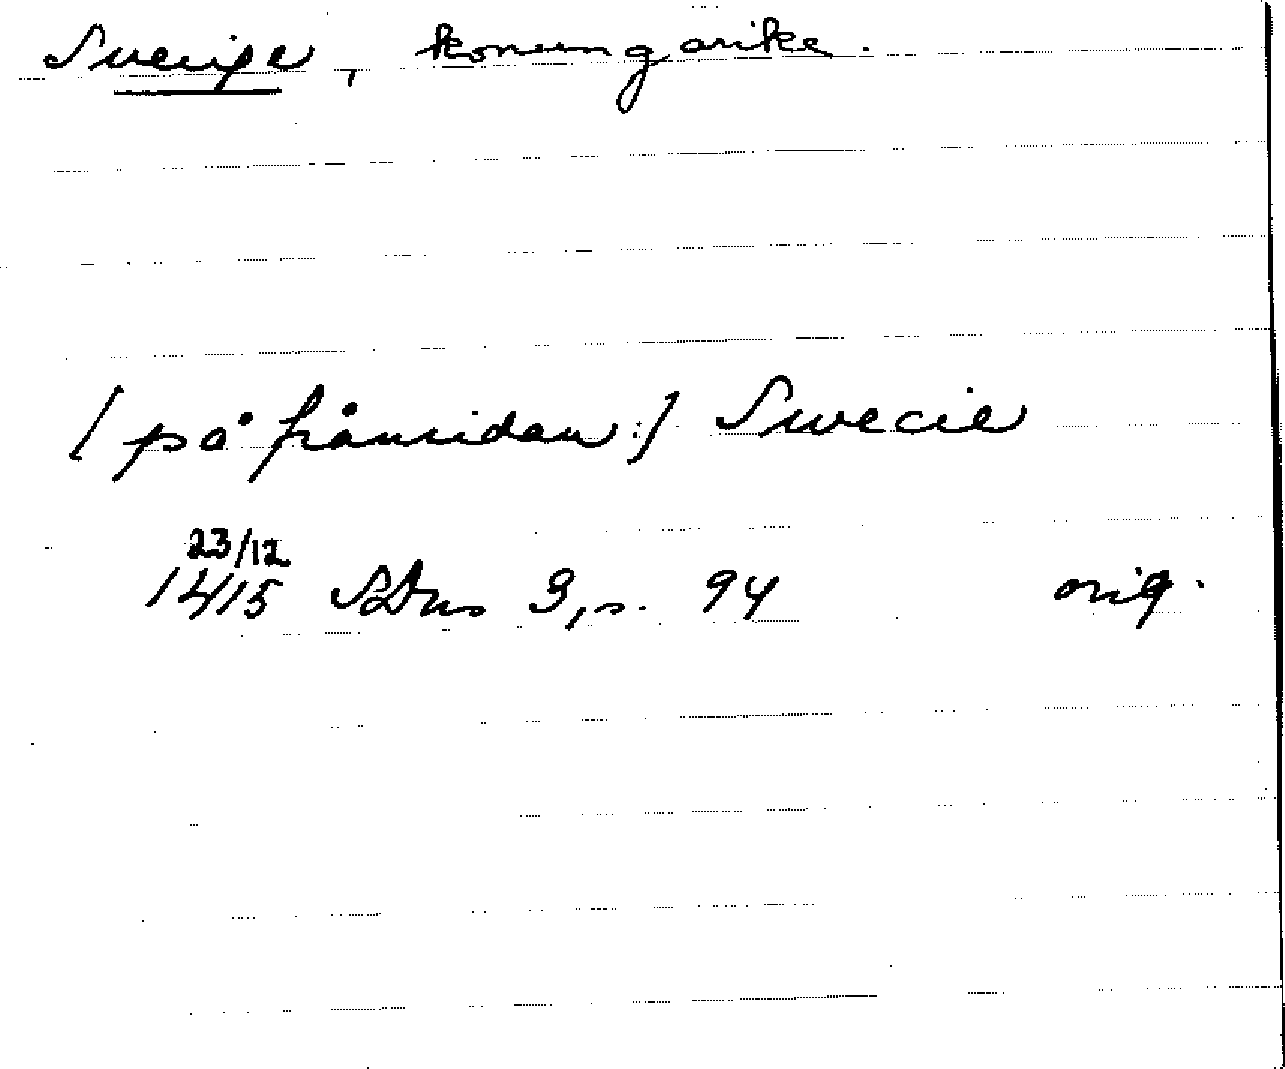 Sverige, konungarike.
[på frånsidan:] Swecie
23/12
1415 SDns 3, s. 94 orig.